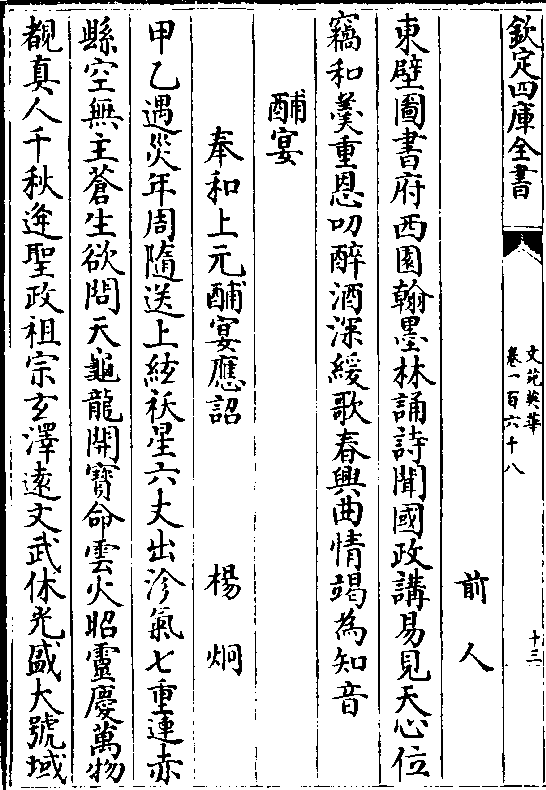 欽定四庫全書
文苑英華
卷一百六十八
十三
前人
東壁圖書府西園翰墨林誦詩聞國政講易見天心位
竊和羮重恩叨醉酒深緩歌春興曲情竭為知音
酺宴
奉和上元酺宴應詔
楊炯
甲乙遇災年周隨送上絃祅星六丈出沴氣七重連赤
縣空無主蒼生欲問天龜龍開寳命雲火昭靈慶萬物
覩真人千秋逄聖政祖宗玄澤逺文武休光盛大號域